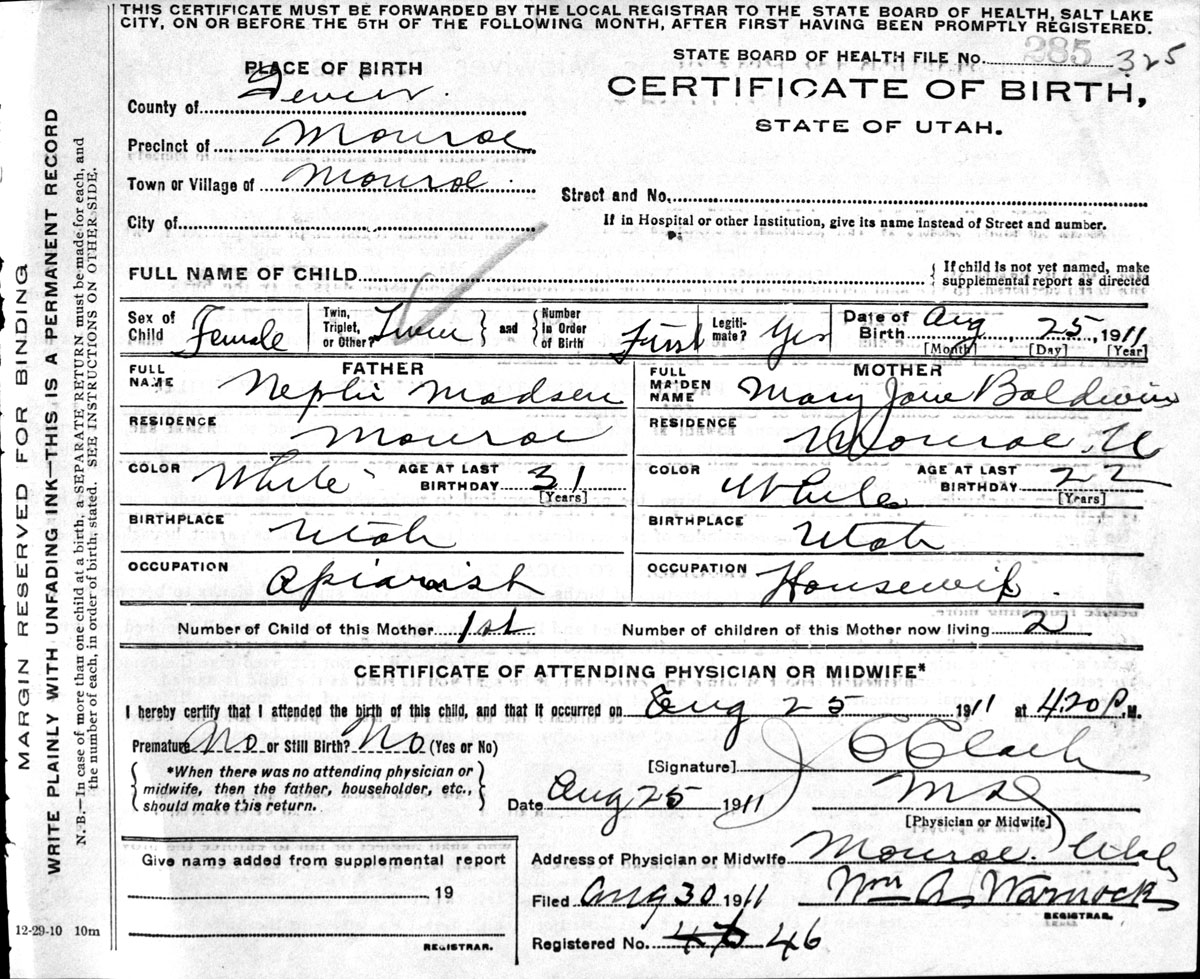 THIS CERTIFICATE MUST BE FORWARDED BY THE LOCAL REGISTRAR TO THE STATE BOARD OF HEALTH, SALT LAKE
CITY, ON OR BEFORE THE 5TH OF THE FOLLOWING MONTH, AFTER FIRST HAVING BEEN PROMPTLY REGISTERED.
STATE BOARD OF HEALTH FILE No. 285 325
PLACE OF BIRTH
CERTIFICATE OF BIRTH,
STATE OF UTAH.
County of Sevier.
Precinct of Monroe
Town or Village of Monroe
Street and No.
City of
If in Hospital or other Institution, give its name instead of Street and number.
FULL NAME OF CHILD
{ If child is not yet named, make
supplemental report as directed
Sex of Child Female Twin, Triplet, or Other? Twin } and { Number in Order of Birth First Legiti-mate? Yes Date of Birth Aug 25, 1911
[Month] [Day] [Year]
FATHER
FULL NAME Nephi Madsen
RESIDENCE Monroe
COLOR White AGE AT LAST BIRTHDAY 31
[Years]
BIRTHPLACE Utah
OCCUPATION Apiarist
MOTHER
FULL MAIDEN NAME Mary Jane Baldwin
RESIDENCE Monroe, U
COLOR White AGE AT LAST BIRTHDAY 22
[Years]
BIRTHPLACE Utah
OCCUPATION Housewife.
Number of Child of this Mother 1st Number of children of this Mother now living 2
CERTIFICATE OF ATTENDING PHYSICIAN OR MIDWIFE*
I hereby certify that I attended the birth of this child, and that it occurred on Aug 25 1911 at 4:20 P. M.
Premature No or Still Birth? No (Yes or No)
{ *When there was no attending physician or
midwife, then the father, householder, etc.,
should make this return. }
[Signature]
Date Aug 25 1911
[Physician or Midwife]
Give name added from supplemental report
19
REGISTRAR.
Address of Physician or Midwife Monroe. Utah
Filed Aug 30 1911 Wm A. Warnock
REGISTRAR.
Registered No. 46
12-29-10 10m
MARGIN RESERVED FOR BINDING
WRITE PLAINLY WITH UNFADING INK—THIS IS A PERMANENT RECORD
N. B.—In case of more than one child at a birth, a SEPARATE RETURN must be made for each, and
the number of each, in order of birth, stated. SEE INSTRUCTIONS ON OTHER SIDE.